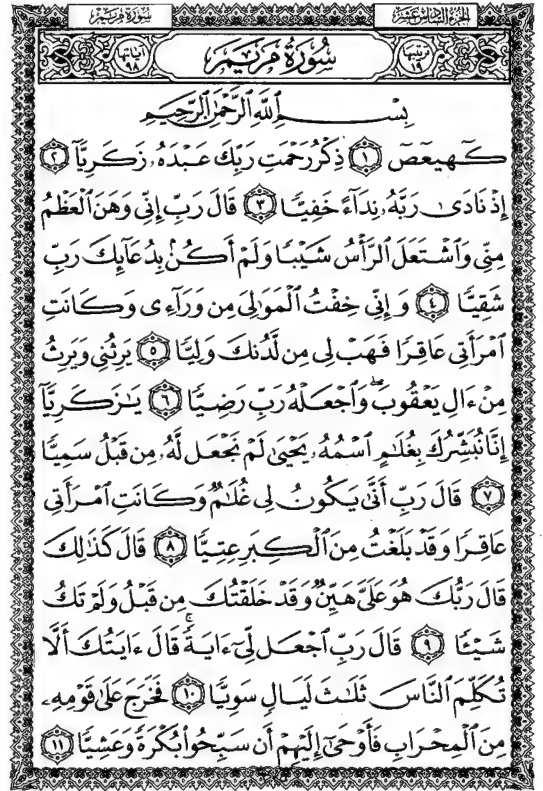 الجزء السادس عشر سورة مريم
ترتيبها ١٩ سورة مريم آياتها ٩٨
بِسْمِ ٱللَّهِ ٱلرَّحْمَٰنِ ٱلرَّحِيمِ
كٓهيعٓصٓ ١ ذِكْرُ رَحْمَتِ رَبِّكَ عَبْدَهُۥ زَكَرِيَّآ ٢
إِذْ نَادَىٰ رَبَّهُۥ نِدَآءً خَفِيًّا ٣ قَالَ رَبِّ إِنِّى وَهَنَ ٱلْعَظْمُ
مِنِّى وَٱشْتَعَلَ ٱلرَّأْسُ شَيْبًا وَلَمْ أَكُنۢ بِدُعَآئِكَ رَبِّ
شَقِيًّا ٤ وَإِنِّى خِفْتُ ٱلْمَوَٰلِىَ مِن وَرَآءِى وَكَانَتِ
ٱمْرَأَتِى عَاقِرًا فَهَبْ لِى مِن لَّدُنكَ وَلِيًّا ٥ يَرِثُنِى وَيَرِثُ
مِنْ ءَالِ يَعْقُوبَ ۖ وَٱجْعَلْهُ رَبِّ رَضِيًّا ٦ يَٰزَكَرِيَّآ
إِنَّا نُبَشِّرُكَ بِغُلَٰمٍ ٱسْمُهُۥ يَحْيَىٰ لَمْ نَجْعَل لَّهُۥ مِن قَبْلُ سَمِيًّا
٧ قَالَ رَبِّ أَنَّىٰ يَكُونُ لِى غُلَٰمٌ وَكَانَتِ ٱمْرَأَتِى
عَاقِرًا وَقَدْ بَلَغْتُ مِنَ ٱلْكِبَرِ عِتِيًّا ٨ قَالَ كَذَٰلِكَ
قَالَ رَبُّكَ هُوَ عَلَىَّ هَيِّنٌ وَقَدْ خَلَقْتُكَ مِن قَبْلُ وَلَمْ تَكُ
شَيْـًٔا ٩ قَالَ رَبِّ ٱجْعَل لِّىٓ ءَايَةً ۚ قَالَ ءَايَتُكَ أَلَّا
تُكَلِّمَ ٱلنَّاسَ ثَلَٰثَ لَيَالٍ سَوِيًّا ١٠ فَخَرَجَ عَلَىٰ قَوْمِهِۦ
مِنَ ٱلْمِحْرَابِ فَأَوْحَىٰٓ إِلَيْهِمْ أَن سَبِّحُوا۟ بُكْرَةً وَعَشِيًّا ١١